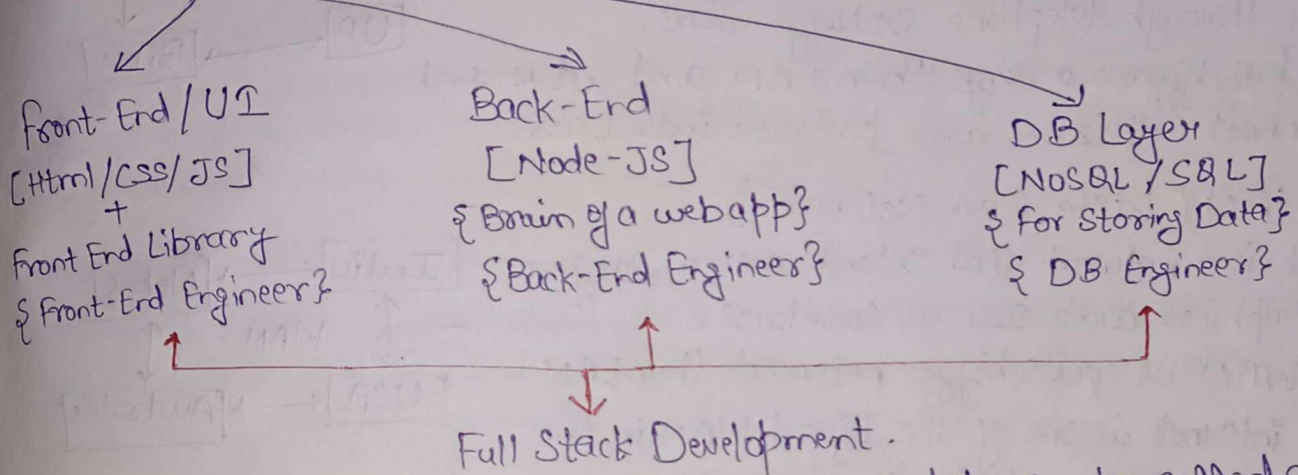 Front-End / UI
[Html/CSS/JS]
+
Front End Library
{Front-End Engineer}
Back-End
[Node-JS]
{Brain of a webapp}
{Back-End Engineer}
DB Layer
[NoSQL / SQL]
{For Storing Data}
{DB Engineer}
Full Stack Development.